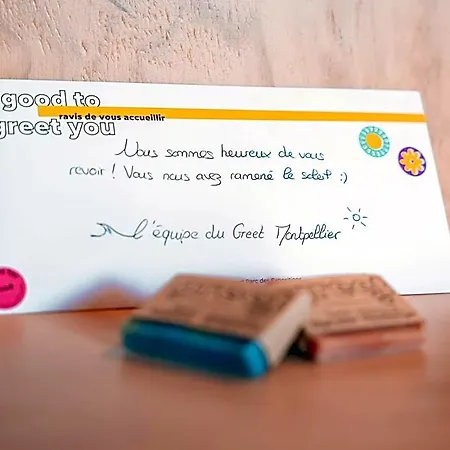 good to
ravis de vous accueillir
greet you
Nous sommes heureux de vous
revoir ! Vous nous avez ramené le soleil :)
l'équipe du Greet Montpellier